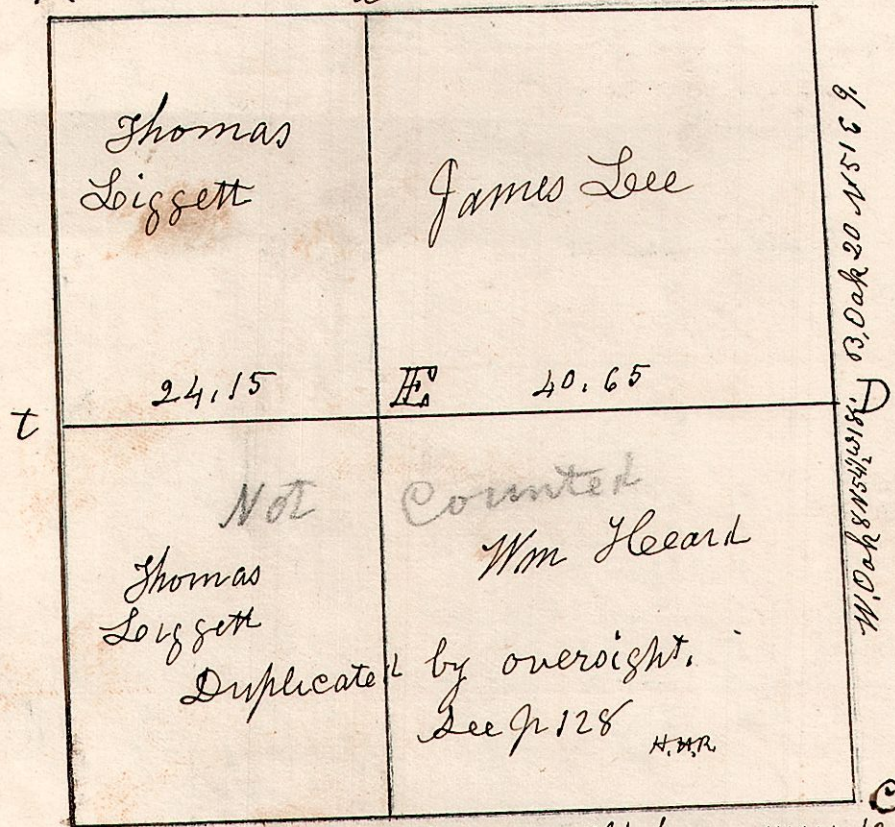 Thomas
Liggett
James Lee
24.15
E
40.65
t
D
Not Counted
Thomas
Liggett
Wm Heard
Duplicated by oversight.
See p 128
H.H.R.
B. Oak 20 N 51 E 9
W. Oak 8 N 54½ W 18.
C